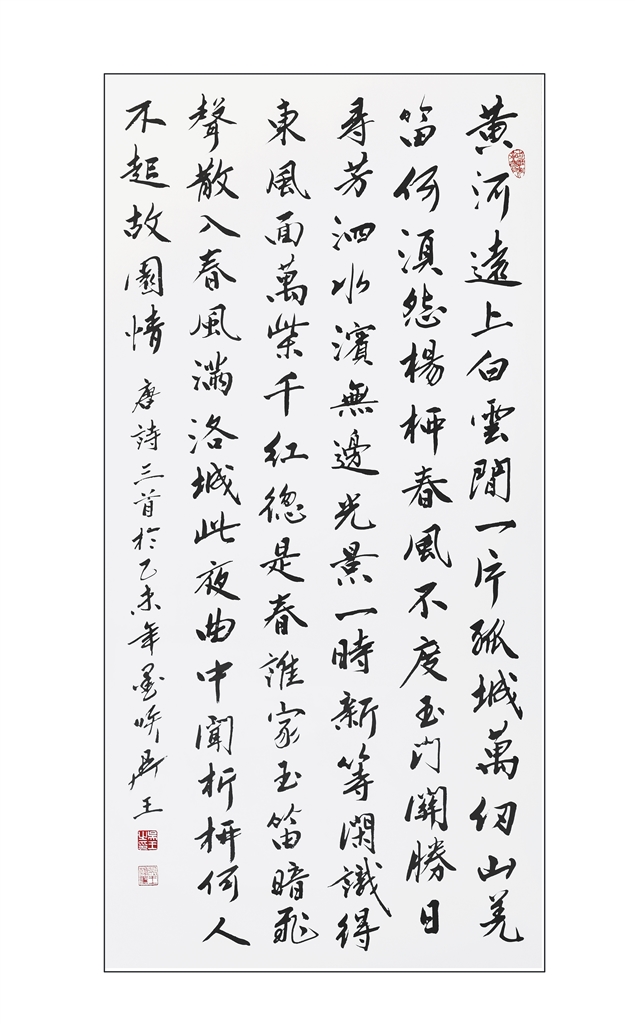 黄河遠上白雲間一片孤城萬仞山羌
笛何須怨楊柳春風不度玉門關勝日
尋芳泗水濱無邊光景一時新等閑識得
東風面萬紫千紅總是春誰家玉笛暗飛
聲散入春風滿洛城此夜曲中聞折柳何人
不起故園情
唐詩三首於乙未年墨